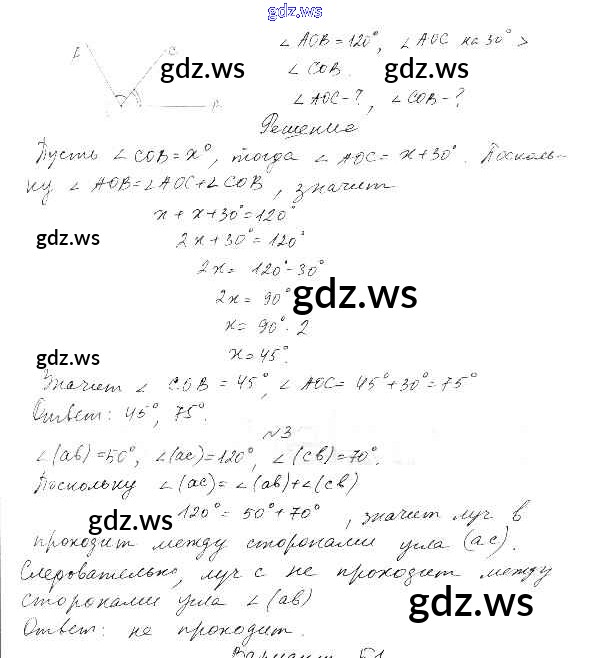 gdz.ws
∠AOB=120°, ∠AOC на 30° >
∠COB.
gdz.ws gdz.ws
∠AOC-?, ∠COB-?
Решение
Пусть ∠COB=x°, тогда ∠AOC=x+30°. Посколь-
ку ∠AOB=∠AOC+∠COB, значит
x+x+30°=120°
gdz.ws
2x+30°=120°
2x=120°-30°
2x=90°
gdz.ws
x=90°:2
x=45°.
gdz.ws
Значит ∠COB=45°, ∠AOC=45°+30°=75°
Ответ: 45°, 75°.
№3
∠(ab)=50°, ∠(ac)=120°, ∠(cb)=70°.
Поскольку ∠(ac)=∠(ab)+∠(cb)
gdz.ws
120°=50°+70°, значит луч b
проходит между сторонами угла (ac).
Следовательно, луч c не проходит между
сторонами угла ∠(ab)
gdz.ws
Ответ: не проходит.
Вариант 51